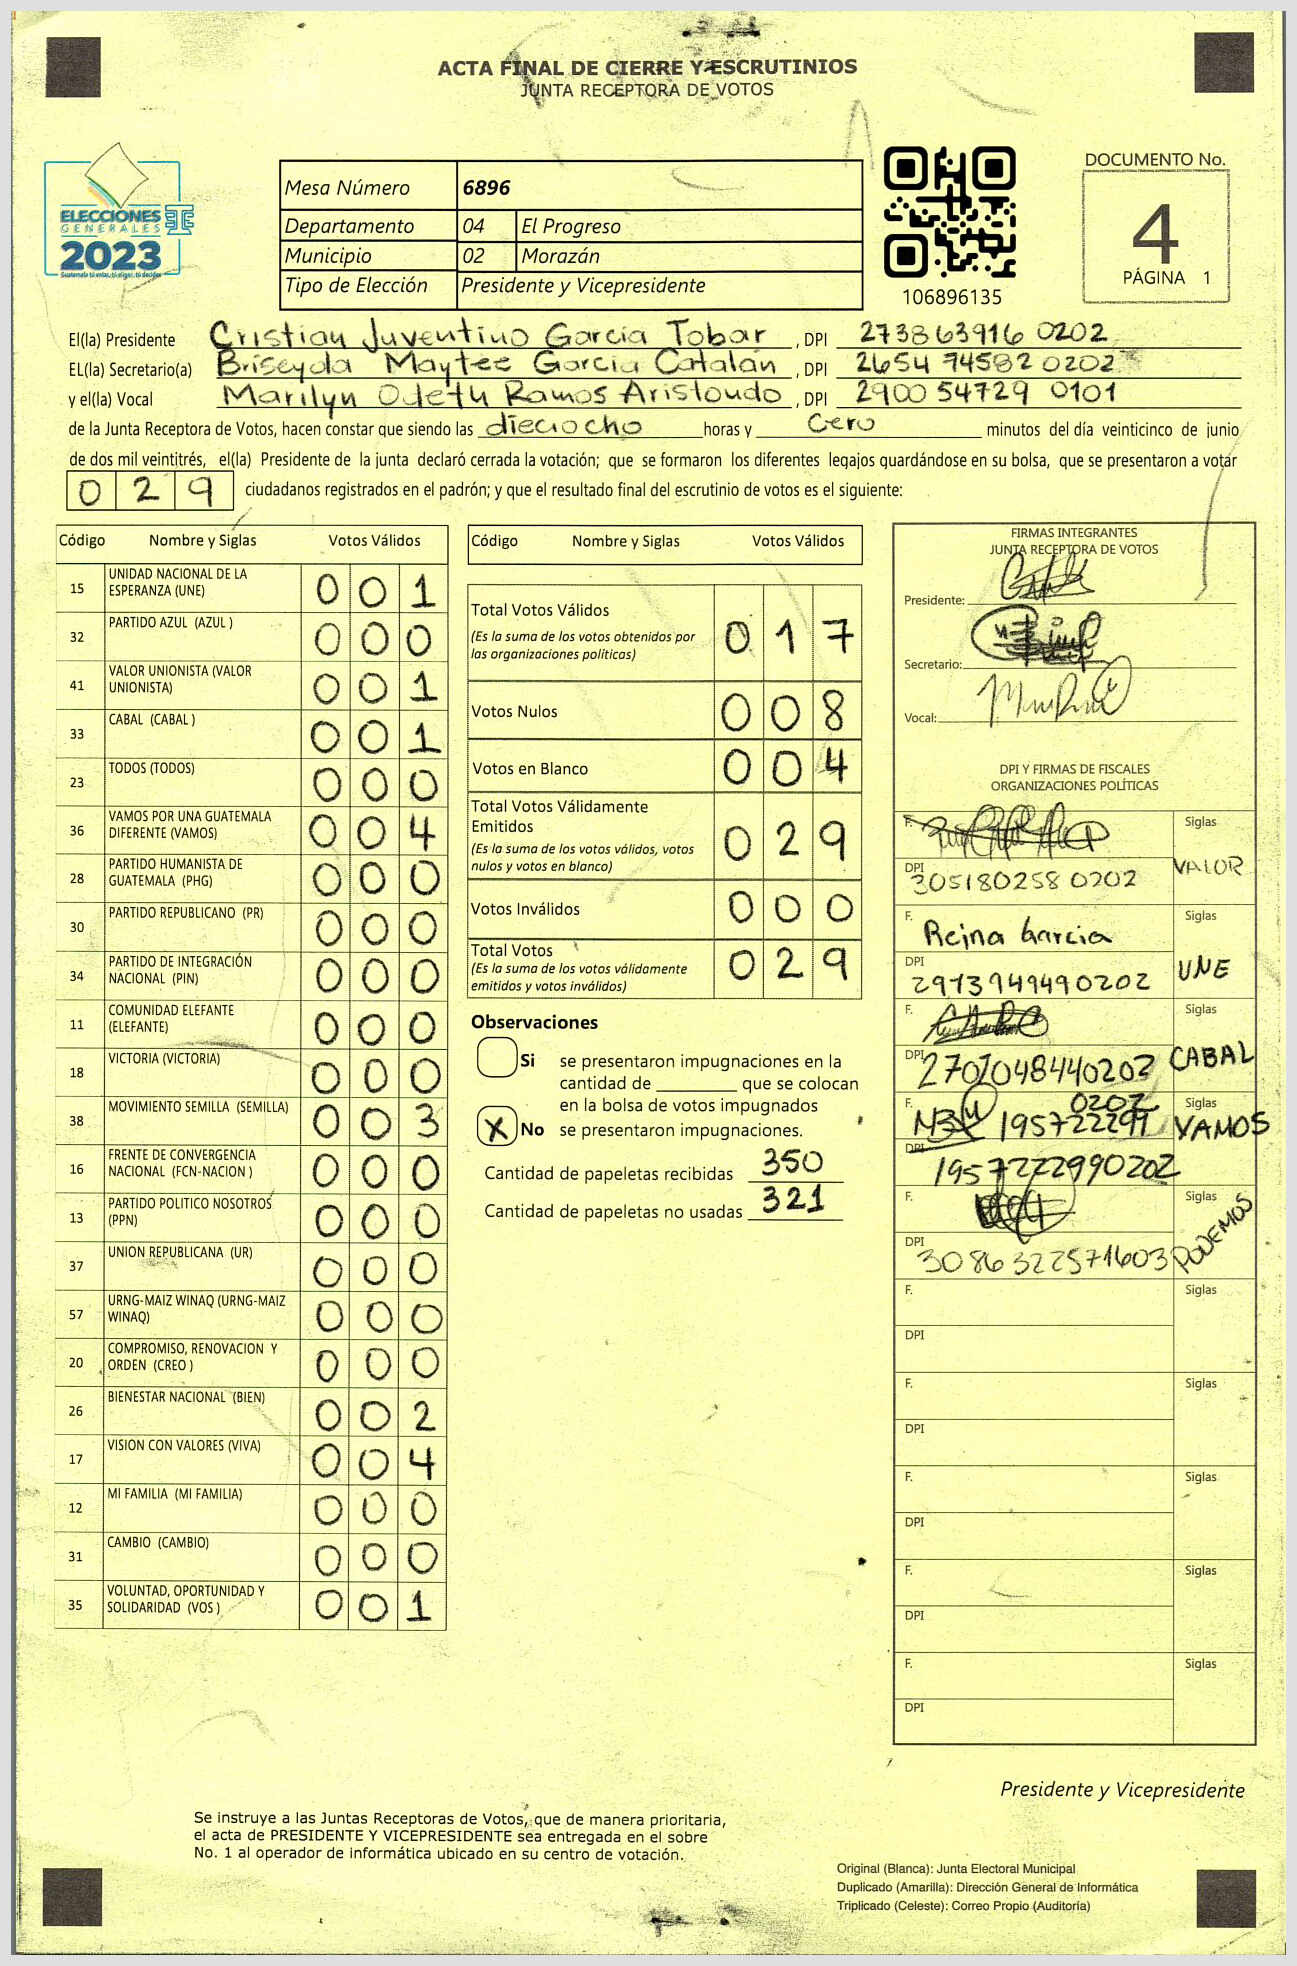 ACTA FINAL DE CIERRE Y ESCRUTINIOS
JUNTA RECEPTORA DE VOTOS
ELECCIONES
GENERALES
2023
Mesa Número 6896
Departamento 04 El Progreso
Municipio 02 Morazán
Tipo de Elección Presidente y Vicepresidente
106896135
DOCUMENTO No.
4
PÁGINA 1
El(la) Presidente Cristian Juventino García Tobar, DPI 273863916 0202
EL(la) Secretario(a) Briseyda Maytee Garcia Catalán, DPI 2654 74582 0202
y el(la) Vocal Marilyn Odeth Ramos Aristondo, DPI 2900 54729 0101
de la Junta Receptora de Votos, hacen constar que siendo las dieciocho horas y Cero minutos del día veinticinco de junio
de dos mil veintitrés, el(la) Presidente de la junta declaró cerrada la votación; que se formaron los diferentes legajos guardándose en su bolsa, que se presentaron a votar
029 ciudadanos registrados en el padrón; y que el resultado final del escrutinio de votos es el siguiente:
Código Nombre y Siglas Votos Válidos
15 UNIDAD NACIONAL DE LA ESPERANZA (UNE) 001
32 PARTIDO AZUL (AZUL ) 000
41 VALOR UNIONISTA (VALOR UNIONISTA) 001
33 CABAL (CABAL ) 001
23 TODOS (TODOS) 000
36 VAMOS POR UNA GUATEMALA DIFERENTE (VAMOS) 004
28 PARTIDO HUMANISTA DE GUATEMALA (PHG) 000
30 PARTIDO REPUBLICANO (PR) 000
34 PARTIDO DE INTEGRACIÓN NACIONAL (PIN) 000
11 COMUNIDAD ELEFANTE (ELEFANTE) 000
18 VICTORIA (VICTORIA) 000
38 MOVIMIENTO SEMILLA (SEMILLA) 003
16 FRENTE DE CONVERGENCIA NACIONAL (FCN-NACION ) 000
13 PARTIDO POLITICO NOSOTROS (PPN) 000
37 UNION REPUBLICANA (UR) 000
57 URNG-MAIZ WINAQ (URNG-MAIZ WINAQ) 000
20 COMPROMISO, RENOVACION Y ORDEN (CREO ) 000
26 BIENESTAR NACIONAL (BIEN) 002
17 VISION CON VALORES (VIVA) 004
12 MI FAMILIA (MI FAMILIA) 000
31 CAMBIO (CAMBIO) 000
35 VOLUNTAD, OPORTUNIDAD Y SOLIDARIDAD (VOS ) 001
Código Nombre y Siglas Votos Válidos
Total Votos Válidos 017
(Es la suma de los votos obtenidos por
las organizaciones políticas)
Votos Nulos 008
Votos en Blanco 004
Total Votos Válidamente
Emitidos 029
(Es la suma de los votos válidos, votos
nulos y votos en blanco)
Votos Inválidos 000
Total Votos 029
(Es la suma de los votos válidamente
emitidos y votos inválidos)
Observaciones
Si se presentaron impugnaciones en la
cantidad de ________ que se colocan
en la bolsa de votos impugnados
X No se presentaron impugnaciones.
Cantidad de papeletas recibidas 350
Cantidad de papeletas no usadas 321
FIRMAS INTEGRANTES
JUNTA RECEPTORA DE VOTOS
Presidente:
Secretario:
Vocal:
DPI Y FIRMAS DE FISCALES
ORGANIZACIONES POLÍTICAS
F. Siglas
DPI 305180258 0202 VALOR
F. Reina Garcia Siglas
DPI 2973949490202 UNE
F. Siglas
DPI 2707048440202 CABAL
F. 195722299 0202 Siglas VAMOS
DPI 1957222990202
F. Siglas
DPI 3086322571603 PODEMOS
F. Siglas
DPI
F. Siglas
DPI
F. Siglas
DPI
F. Siglas
DPI
F. Siglas
DPI
Presidente y Vicepresidente
Se instruye a las Juntas Receptoras de Votos, que de manera prioritaria,
el acta de PRESIDENTE Y VICEPRESIDENTE sea entregada en el sobre
No. 1 al operador de informática ubicado en su centro de votación.
Original (Blanca): Junta Electoral Municipal
Duplicado (Amarilla): Dirección General de Informática
Triplicado (Celeste): Correo Propio (Auditoría)